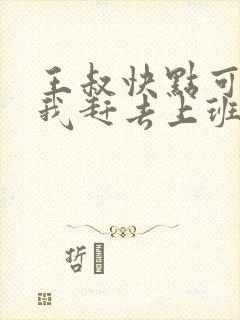 王叔快點可
我赶去上班
哲